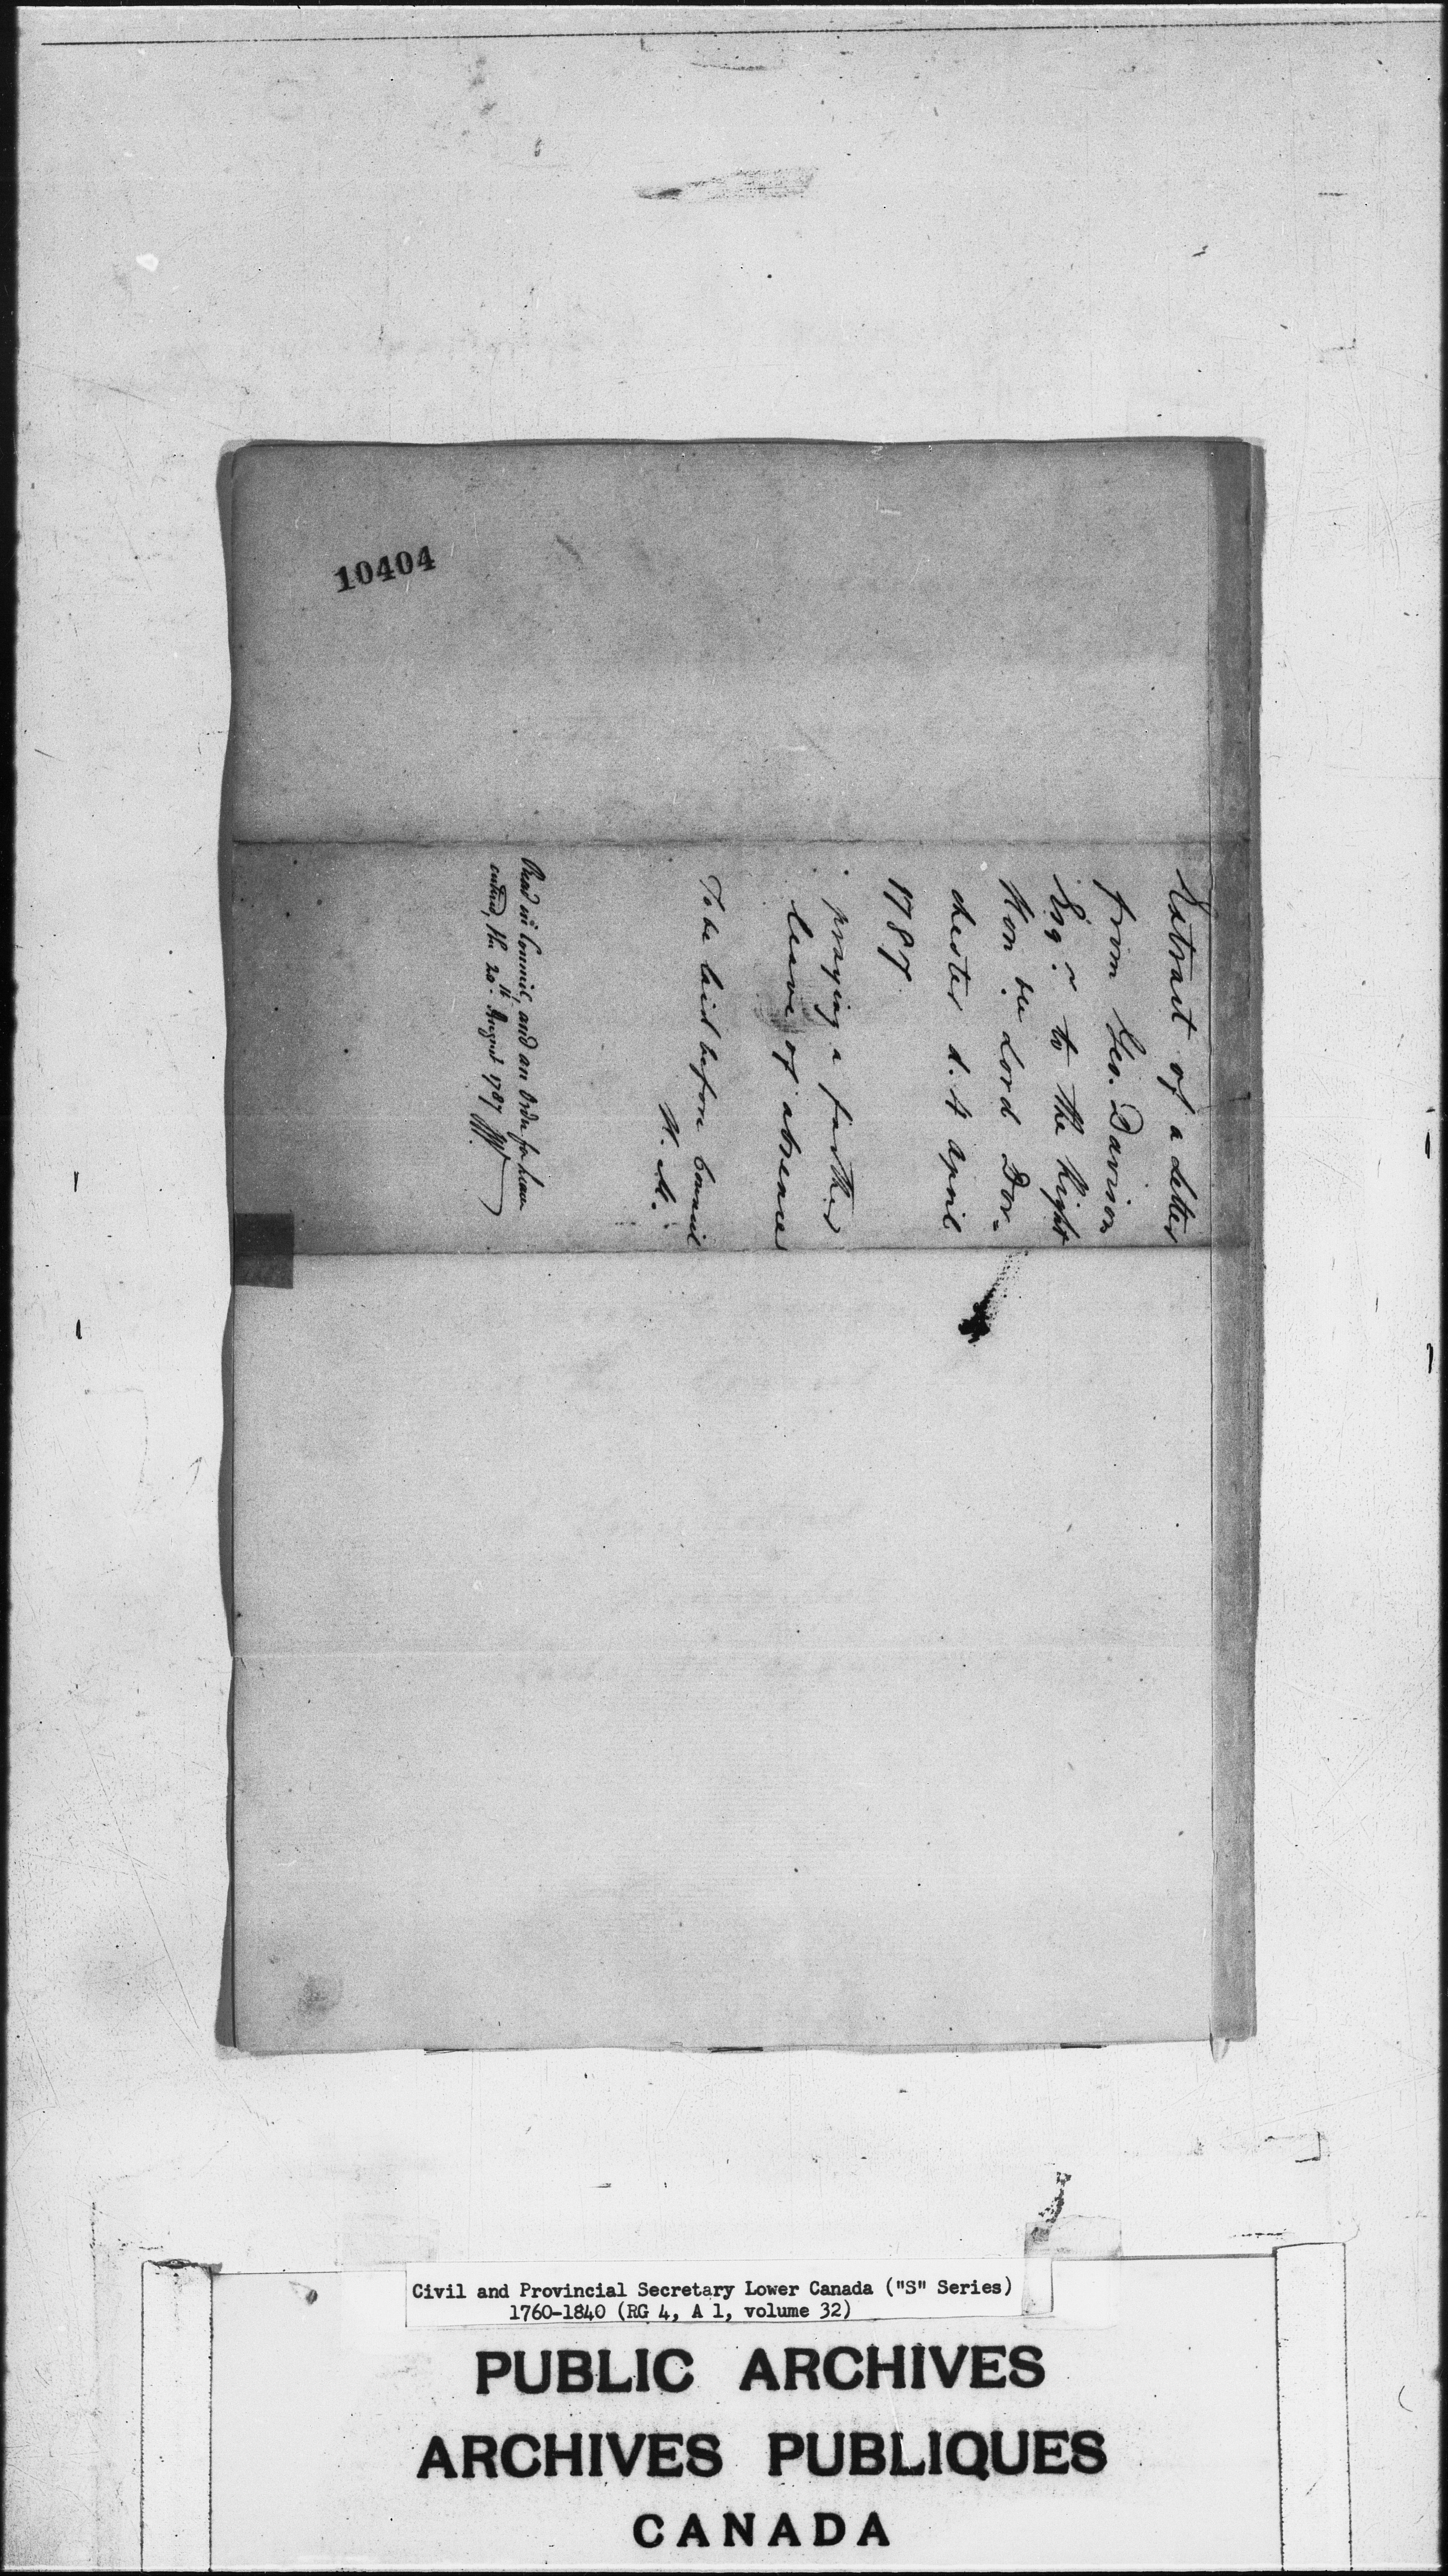 10404
Extract of a Letter
from Geo. Davison
Esqr. to the Right
Honble Lord Dor-
chester d. 4 April
1787.
praying a further
leave of absence
To be laid before Council
H. M.
Read in Council, and an Order for leave
entered, the 20th. August 1787
Civil and Provincial Secretary Lower Canada ("S" Series)
1760-1840 (RG 4, A 1, volume 32)
PUBLIC ARCHIVES
ARCHIVES PUBLIQUES
CANADA